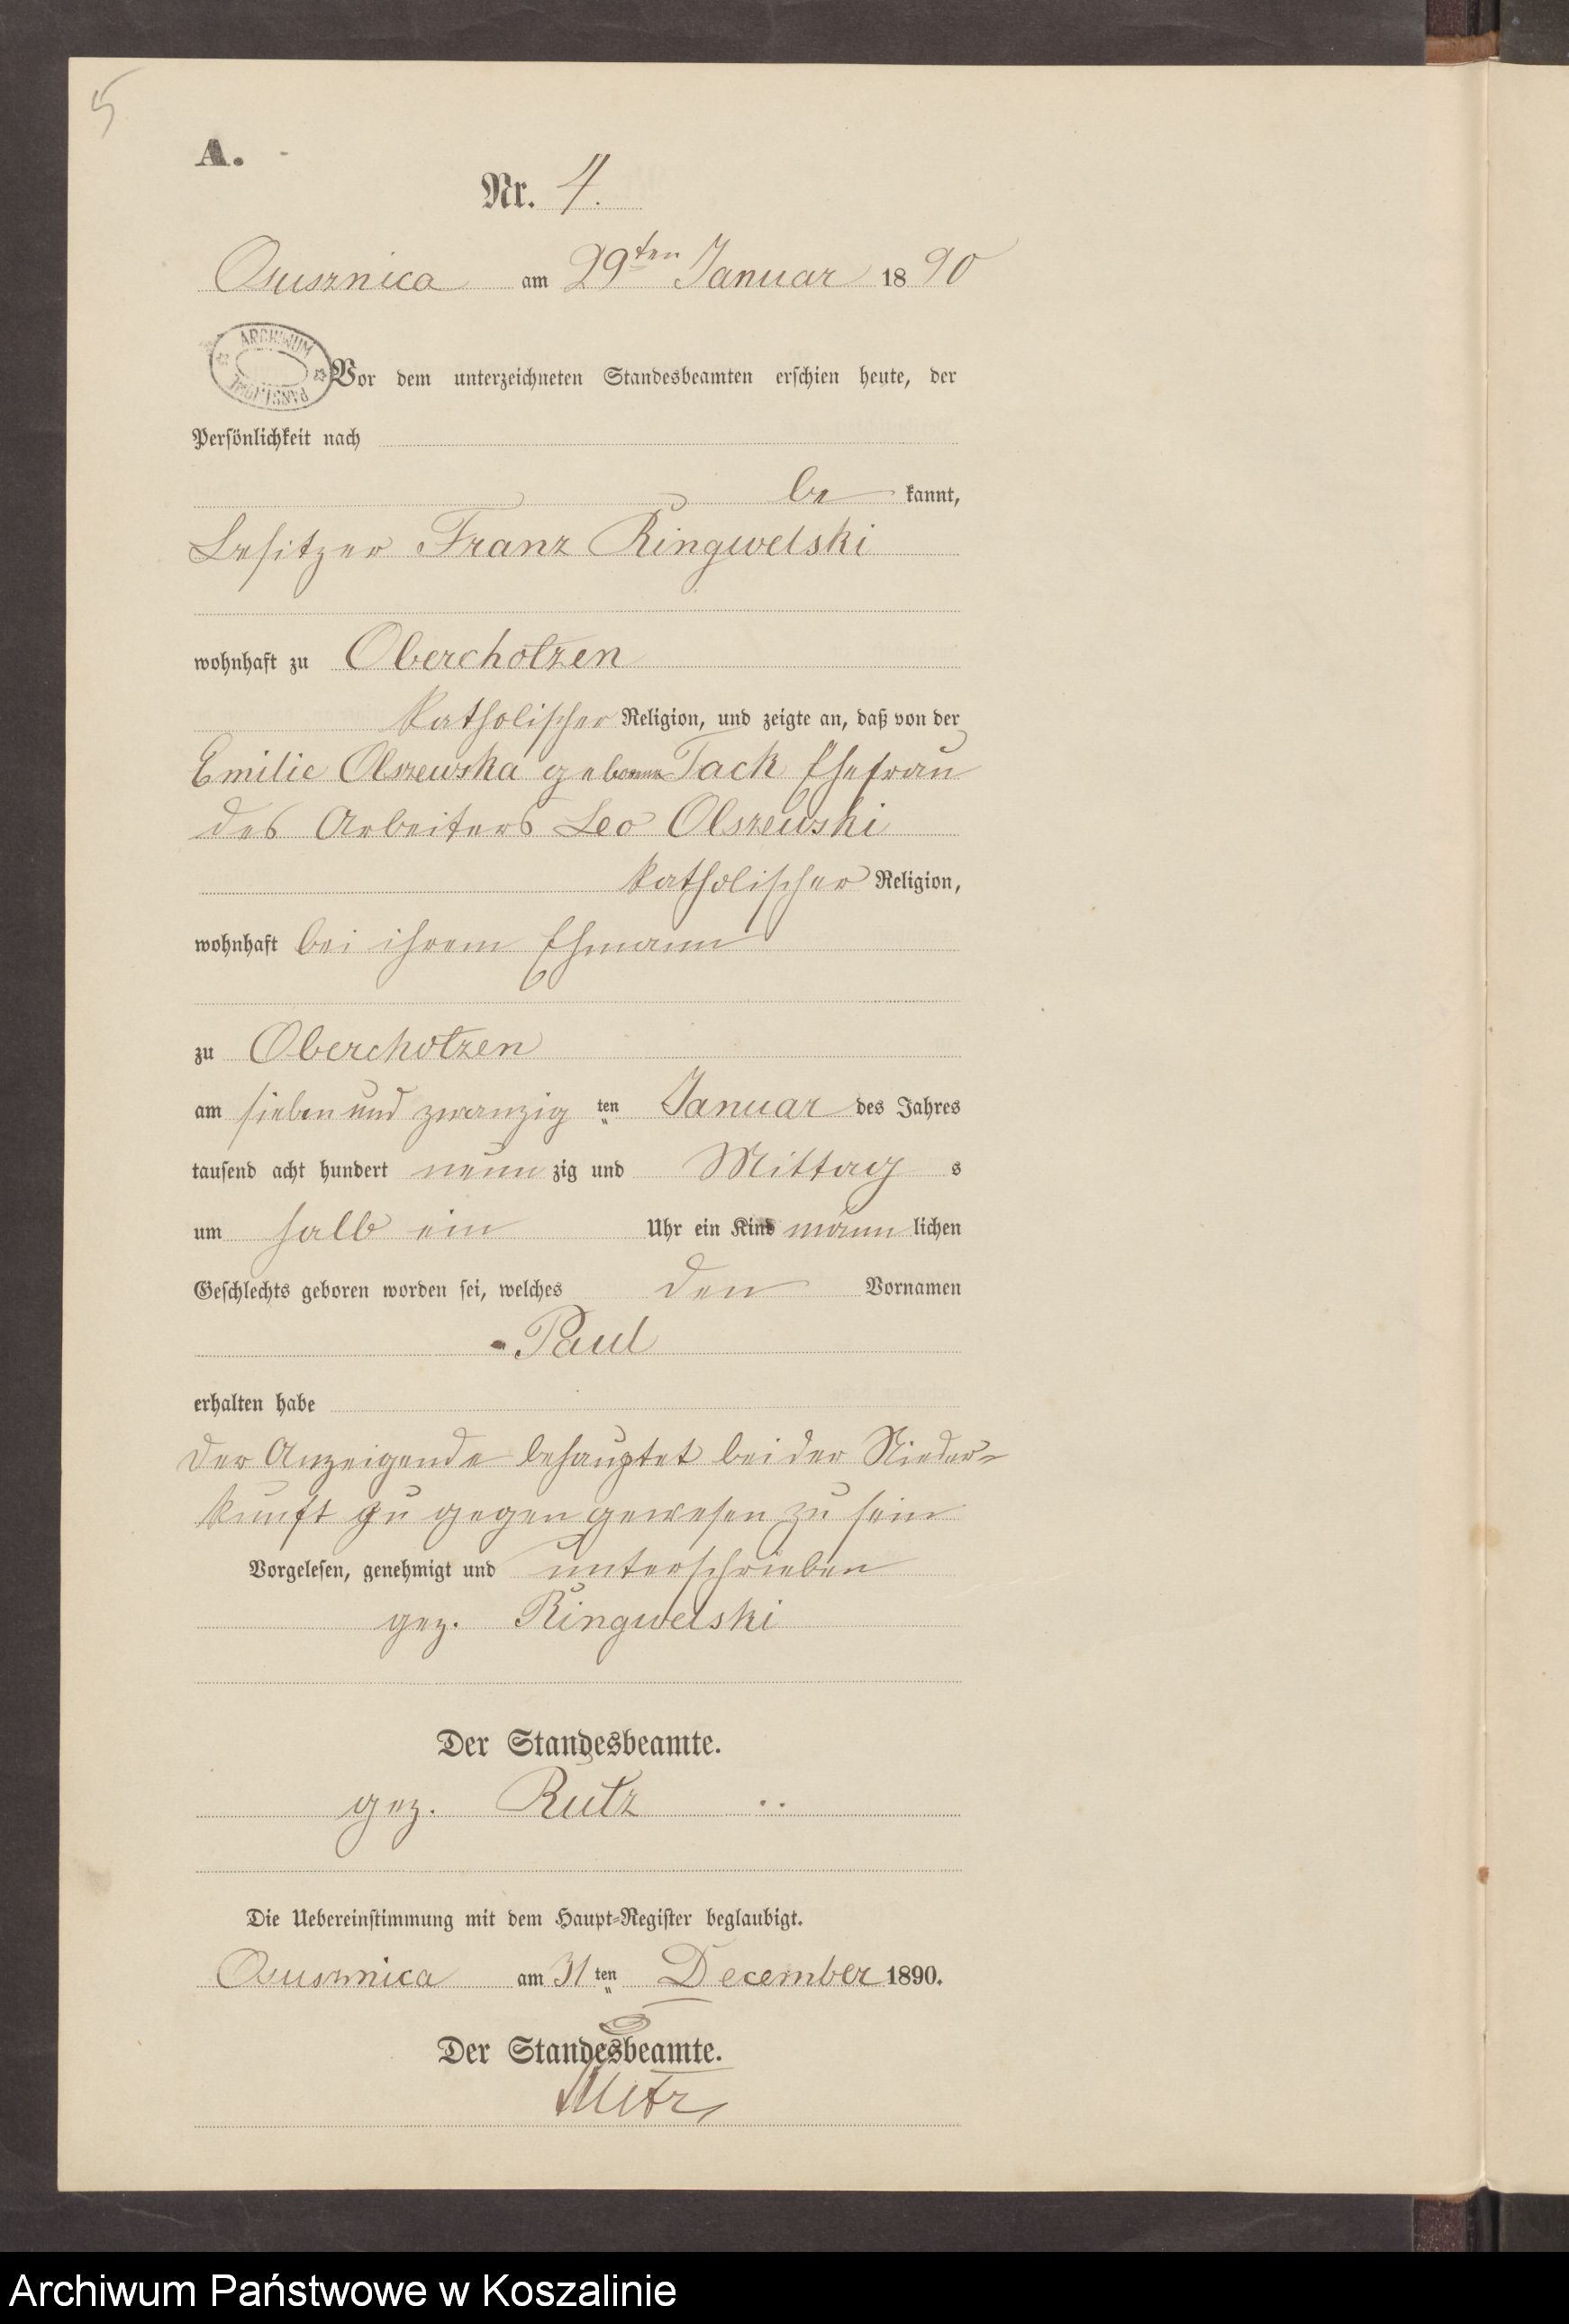 5
A.
Nr. 4.
Osusznica am 29ten Januar 1890
ARCHIWUM
PAŃSTWOWE
Vor dem unterzeichneten Standesbeamten erschien heute, der
Persönlichkeit nach
be kannt,
Besitzer Franz Ringwelski
wohnhaft zu Oberchotzen
katholischer Religion, und zeigte an, daß von der
Emilie Olszewska geborene Tack Ehefrau
des Arbeiters Leo Olszewski
katholischer Religion,
wohnhaft bei ihrem Ehmann
zu Oberchotzen
am sieben und zwanzig ten Januar des Jahres
tausend acht hundert neun zig und Mittag s
um halb ein Uhr ein Kind männ lichen
Geschlechts geboren worden sei, welches den Vornamen
Paul
erhalten habe
Der Anzeigende behauptet bei der Nieder-
kunft zu gegen gewesen zu sein
Vorgelesen, genehmigt und unterschrieben
gez. Ringwelski
Der Standesbeamte.
gez. Rutz
Die Uebereinstimmung mit dem Haupt-Register beglaubigt.
Osusznica am 31 ten December 1890.
Der Standesbeamte.
Archiwum Państwowe w Koszalinie